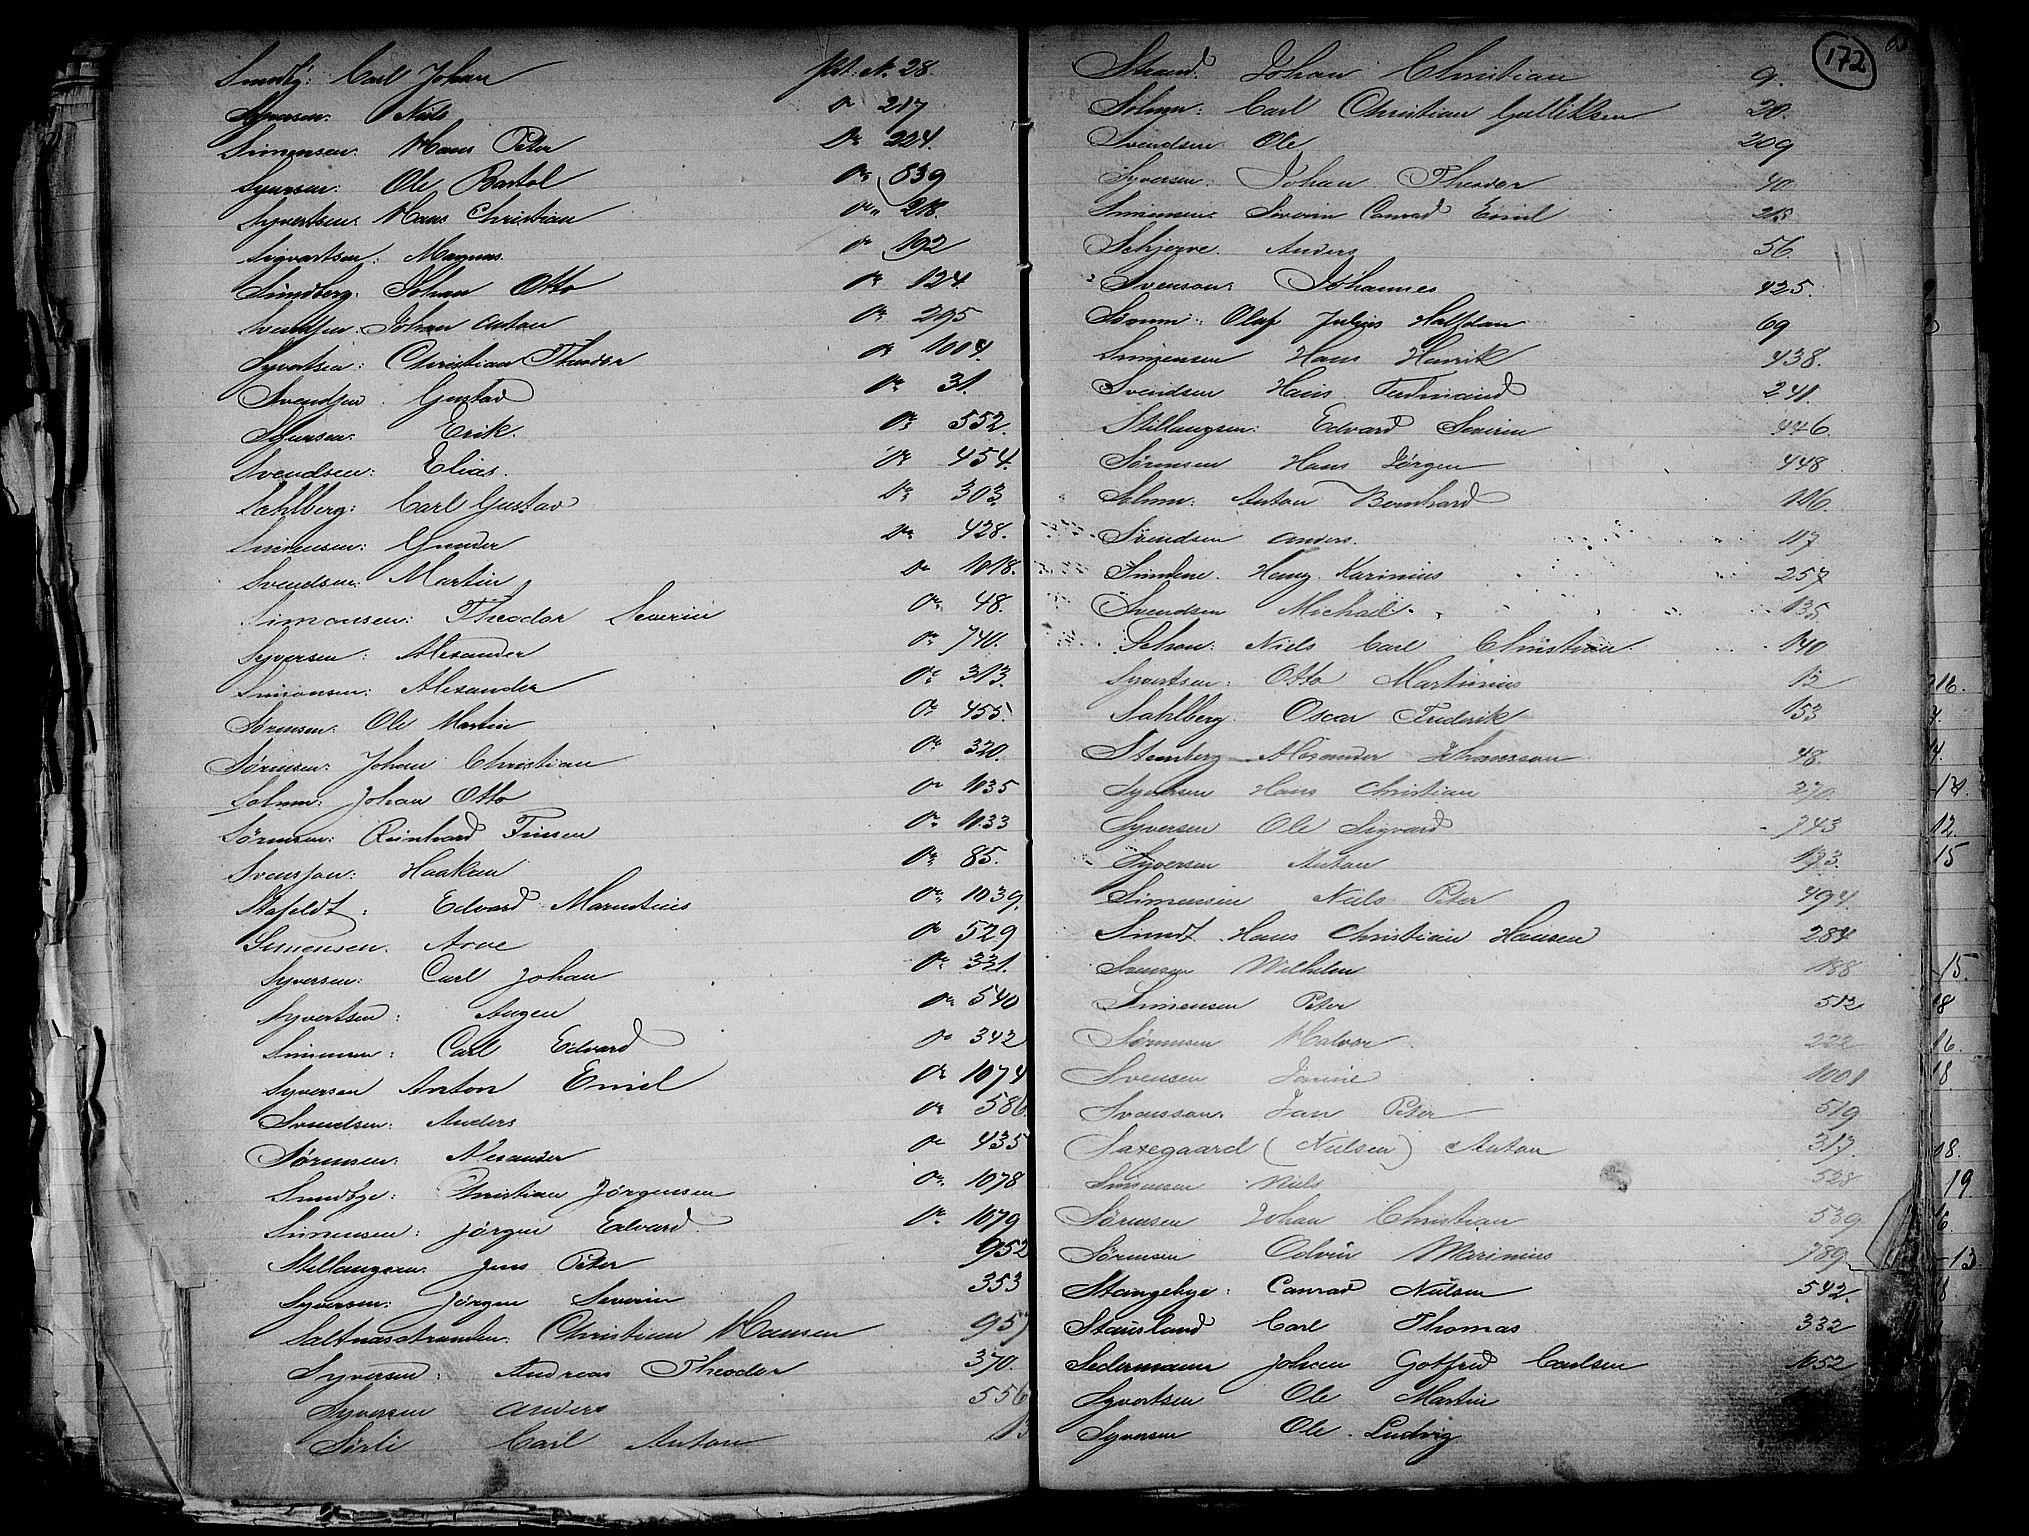 Sundby: Carl Johan Pat. N. 28.
Syversen: Niels Do 217
Simensen: Hans Peter Do 204.
Syversen: Ole Bartol Do 839
Syvertsen: Hans Christian Do 218.
Sigvartsen: Magnus Do 192
Sundberg: Johan Otto Do 124
Svendsen: Johan Anton Do 295
Syvertsen: Christian Theodor Do 1004.
Svendsen: Gustav Do 31.
Syversen: Erik. Do 552.
Svendsen: Elias. Do 454.
Sahlberg: Carl Gustav Do 303
Simensen: Gunder Do 428.
Svendsen: Martin Do 1018.
Simonsen: Theodor Severin Do 48.
Syversen: Alexander Do 740.
Simonsen: Alexander Do 313.
Sörensen: Ole Martin Do 455.
Sörensen: Johan Christian Do 320.
Solum: Johan Otto Do 1035
Sörensen: Reinhard Finsen Do 1033
Svensson: Haakan Do 85.
Stafeldt: Edvard Marentius Do 1039.
Simensen. Arve Do 529
Syversen: Carl Johan Do 331.
Syvertsen: Augen Do 540
Simensen: Carl Edvard Do 342
Syversen Anton Emil Do 1074
Svendsen: Anders Do 586.
Sörensen: Alexander Do 435
Sundbye: Christian Jörgensen Do 1078
Simensen: Jörgen Edvard Do 1079
Stillaugsen: Jens Peter 952
Syversen: Jörgen Severin 353
Saltnasstranden. Christian Hansen 957
Syversen: Andreas Theodor 370.
Syversen Anders 556
Sörli Carl Anton
172
Strand: Johan Christian 9.
Solum: Carl Christian Gulliksen 20.
Svendsen Ole 209
Syversen: Johan Theodor 40
Simensen: Severin Conrad Emil 215
Schjerve Anders 56.
Svenson: Johannes 425.
Somm: Olaf Julius Halfdan 69
Simensen Hans Henrik 438.
Svendsen Hans Ferdinand 241.
Stillaugsen: Edvard Severin 446.
Sörensen Hans Jörgen 448
Solum: Anton Bernhard 116.
Svendsen Anders. 117
Sundene. Henry Karinius 257
Svendsen Michael 135
Schou: Niels Carl Christian 140
Syvertsen: Otto Martinius 15
Sahlberg. Oscar Frederik 153
Stenberg Alexander Johansson 48.
Syversen Hans Christian 270.
Syversen Ole Sigvard 743
Syversen Anton 173.
Simensen Niels Peter 494.
Sundt Hans Christian Hansen 284
Svensen Wilhelm 188
Simensen Peter 512
Sörensen Halvor 222
Svensen Janne 1001
Svensson: Jan Peter 519
Saxegaard (Nielsen) Anton 317.
Simensen Niels 528
Sörensen Johan Christian 539
Sörensen Odvin Marinius 789
Stangebye: Conrad Nielsen 542.
Stausland Carl Thomas 332
Sedermann Johan Gotfred Carlsen 1052
Syvertsen Ole Martin
Syversen Ole Ludvig